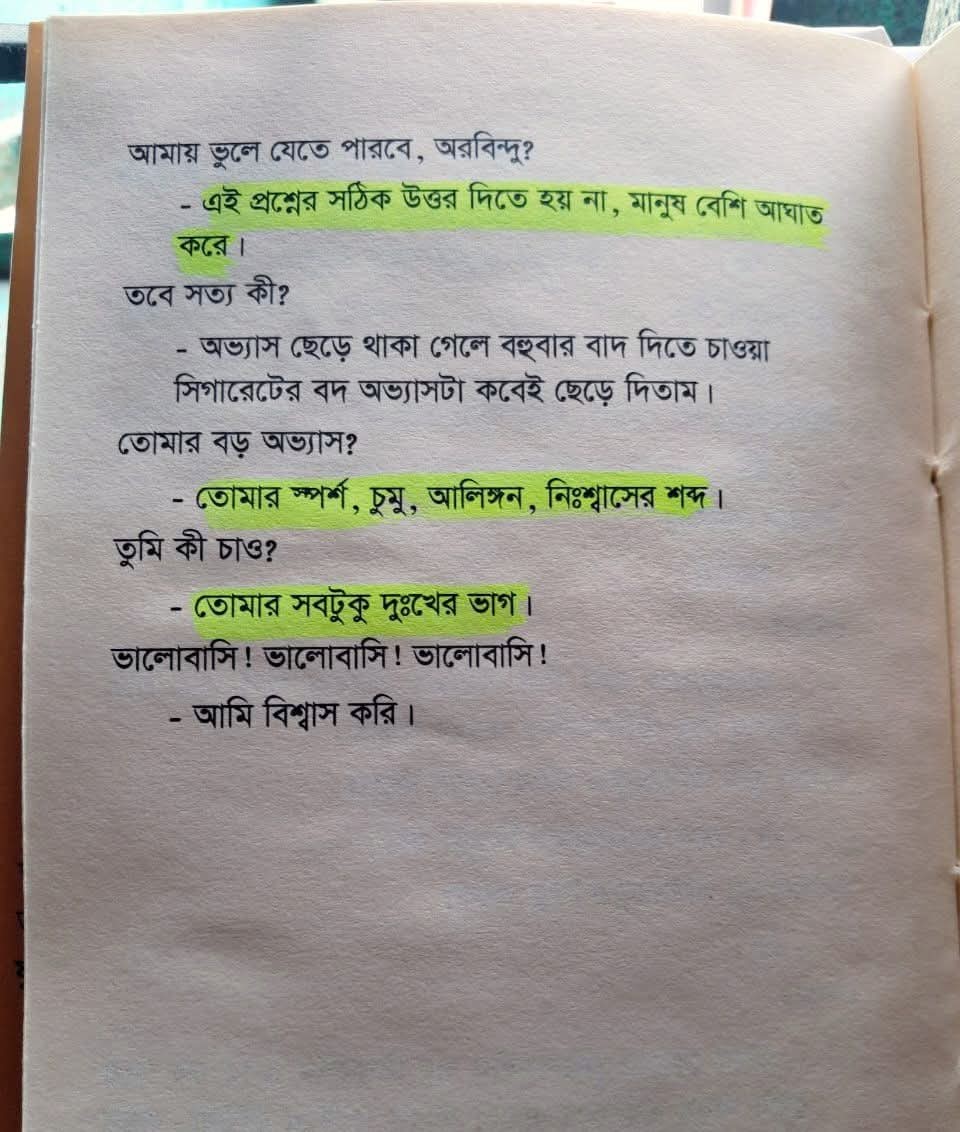 আমায় ভুলে যেতে পারবে, অরবিন্দু?
- এই প্রশ্নের সঠিক উত্তর দিতে হয় না, মানুষ বেশি আঘাত
করে।
তবে সত্য কী?
- অভ্যাস ছেড়ে থাকা গেলে বহুবার বাদ দিতে চাওয়া
সিগারেটের বদ অভ্যাসটা কবেই ছেড়ে দিতাম।
তোমার বড় অভ্যাস?
- তোমার স্পর্শ, চুমু, আলিঙ্গন, নিঃশ্বাসের শব্দ।
তুমি কী চাও?
- তোমার সবটুকু দুঃখের ভাগ।
ভালোবাসি! ভালোবাসি! ভালোবাসি!
- আমি বিশ্বাস করি।